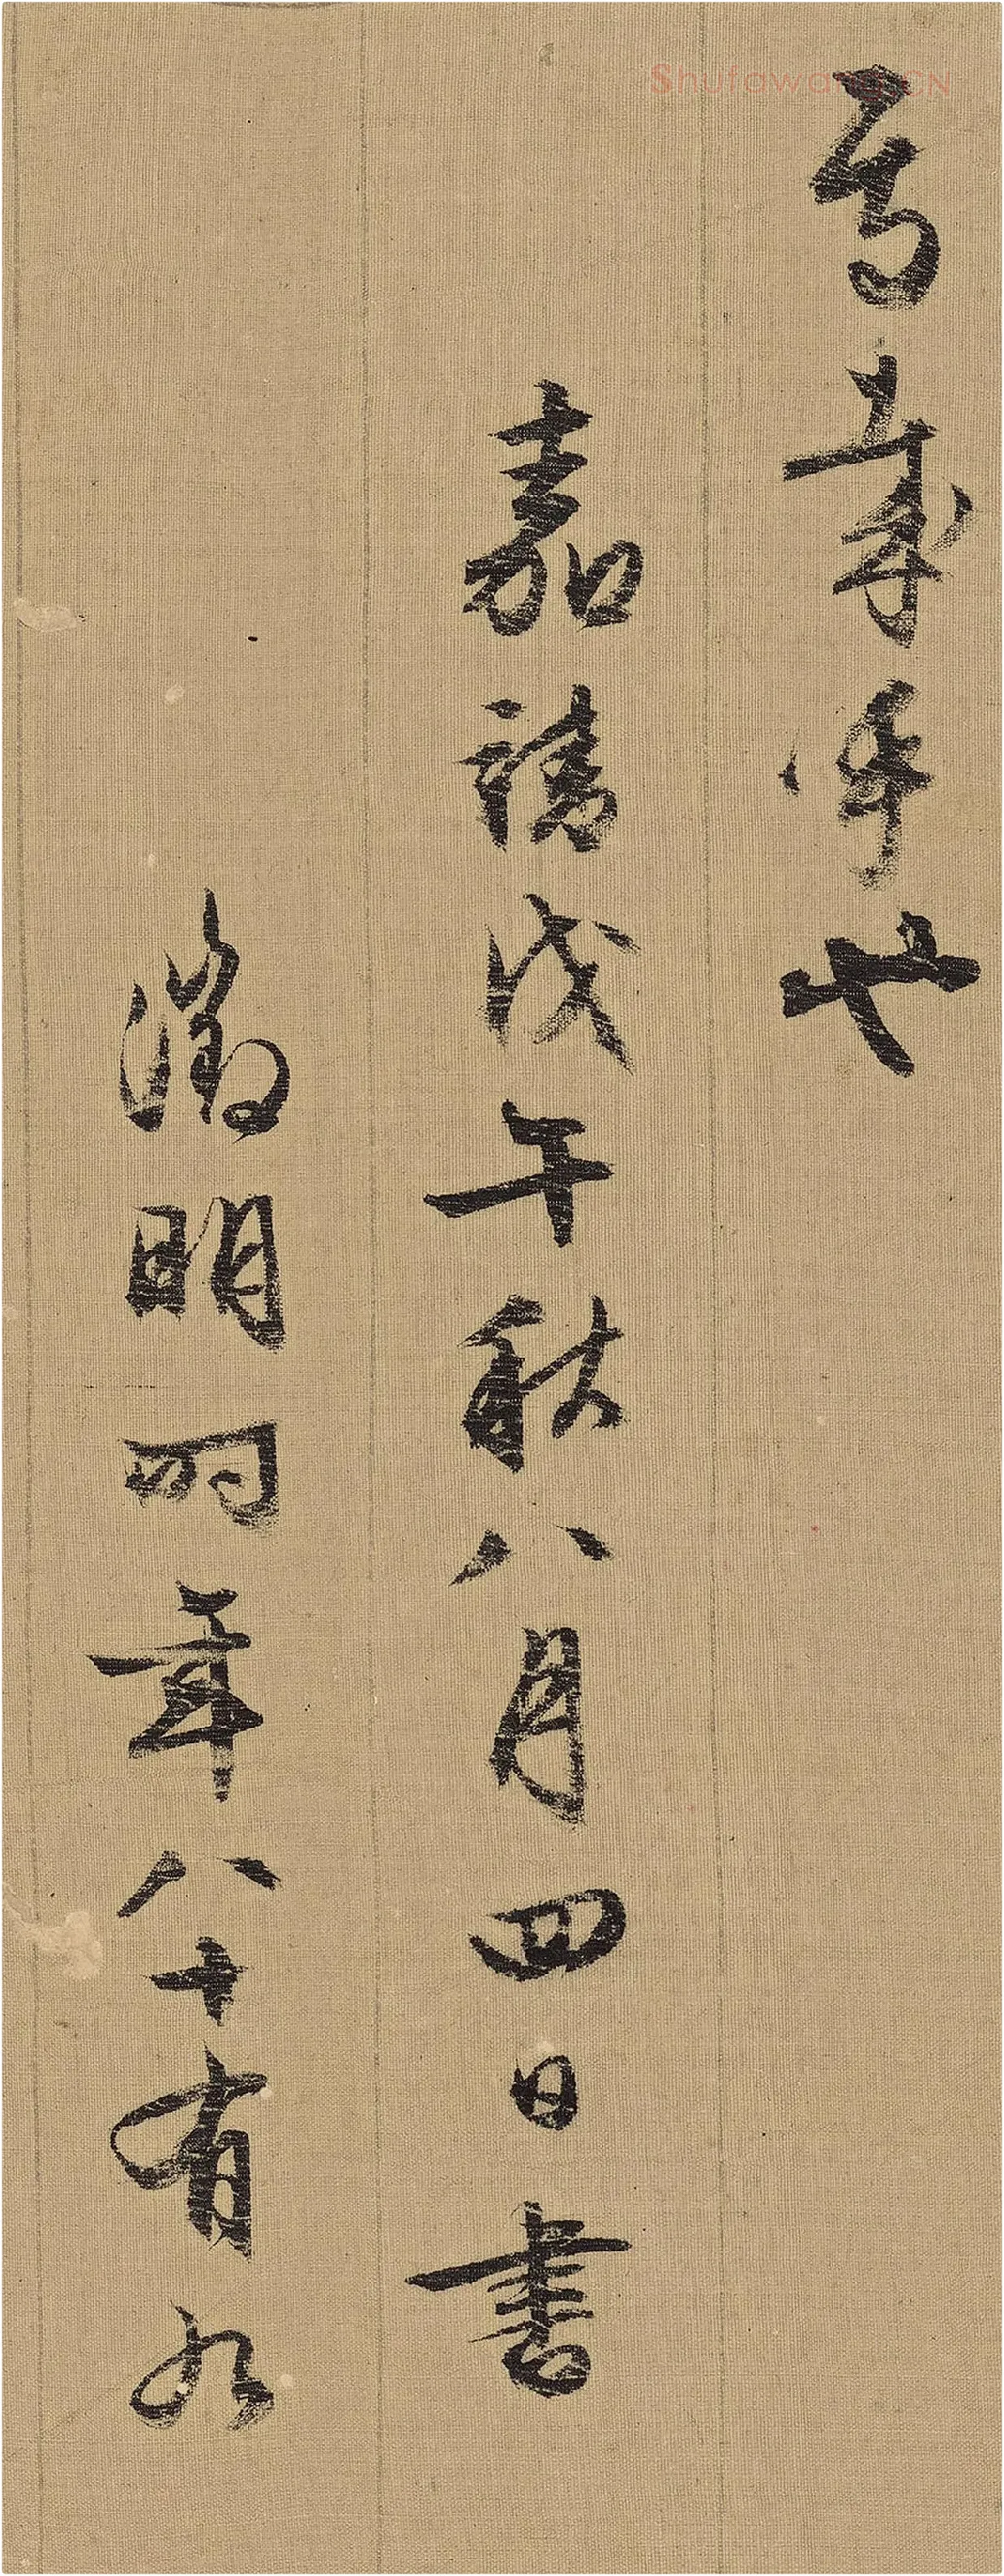 焉哉乎也
嘉靖戊午秋八月四日書
徵明時年八十有九
Shufawang.CN